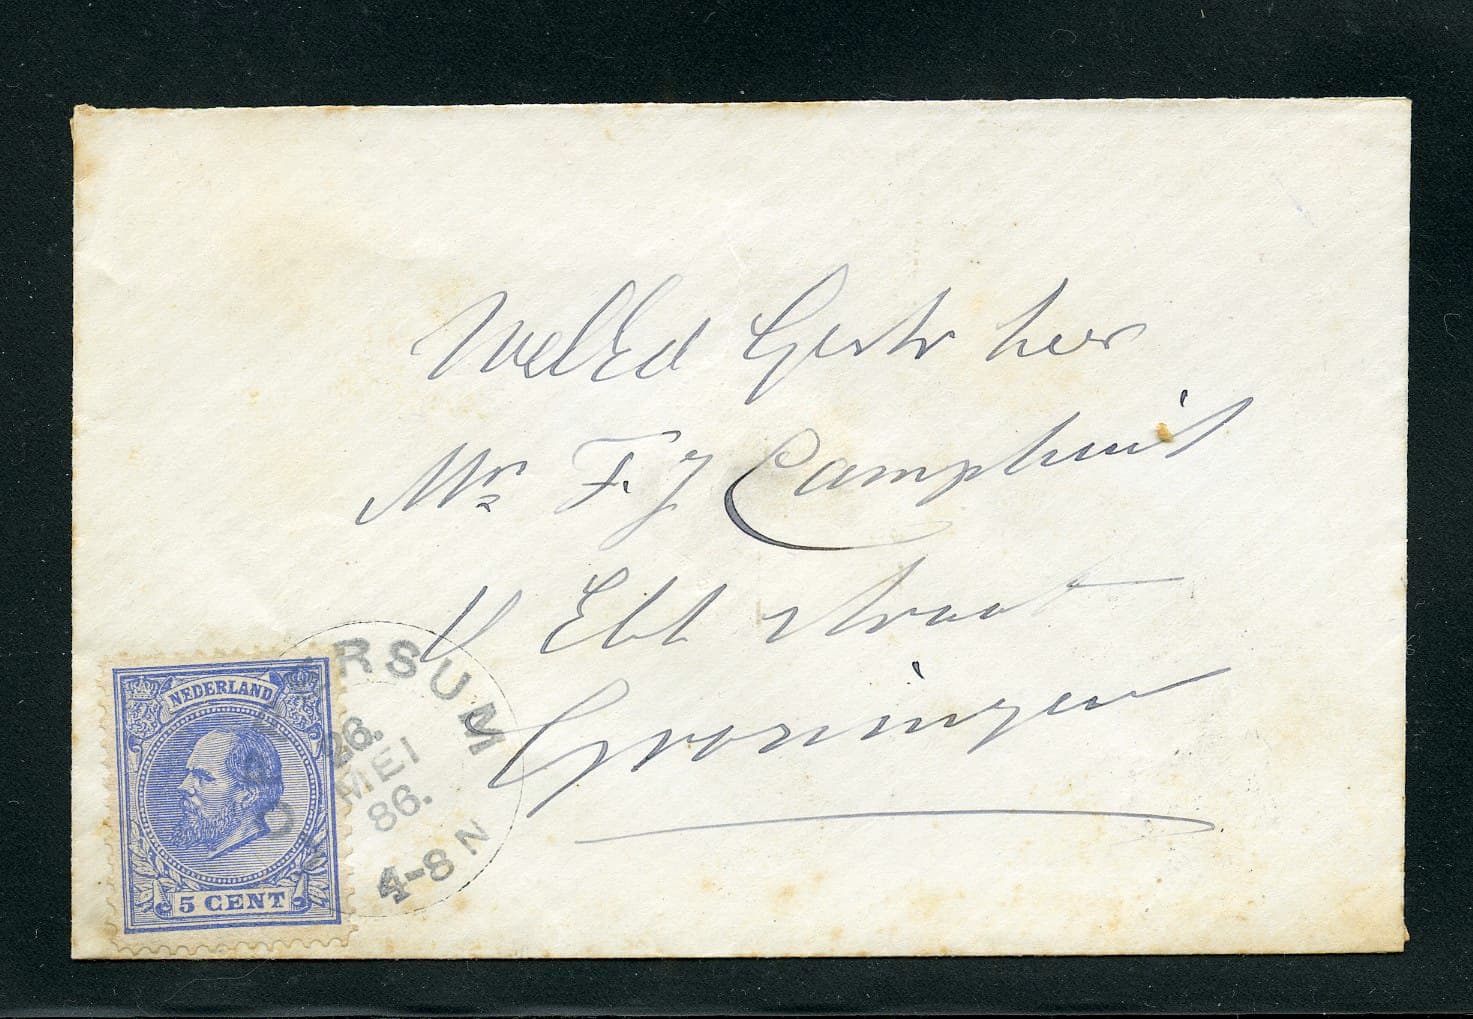 WelEd Gestr heer
Mr F. J Camphuis
V Ebb straat
Groningen
NEDERLAND
5 CENT
ERSUM
26.
MEI
86.
4-8 N